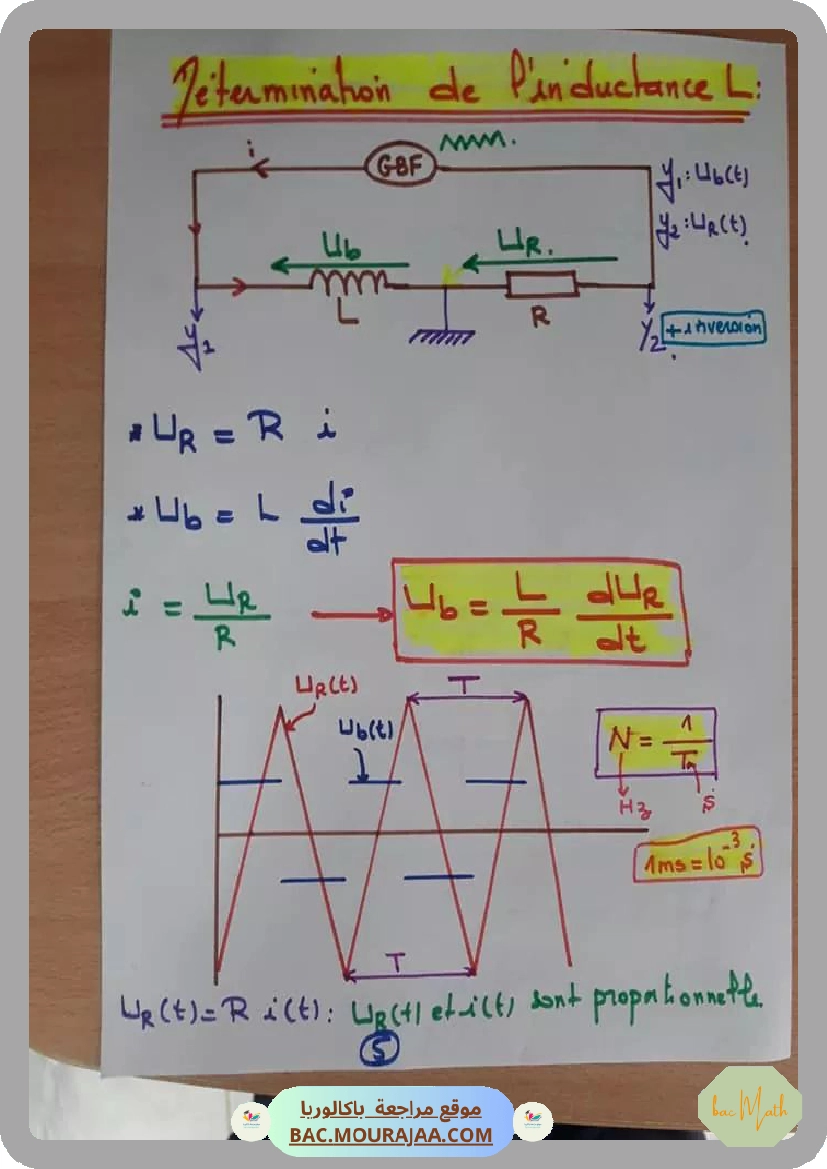 Détermination de l'inductance L:
i
GBF
y₁: Ub(t)
y₂: UR(t).
Ub
UR.
L
R
y₁
y₂ + inversion
* UR = R i
* Ub = L di/dt
i = UR/R → Ub = L/R dUR/dt
UR(t)
T
Ub(t)
N = 1/T
Hz
s
1ms = 10⁻³ s
T
UR(t) = R i(t) : UR(t) et i(t) sont proportionnelle
5
موقع مراجعة باكالوريا
BAC.MOURAJAA.COM
bac Math